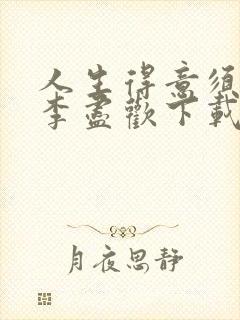 人生得意须
李盡歡下載
月夜思静